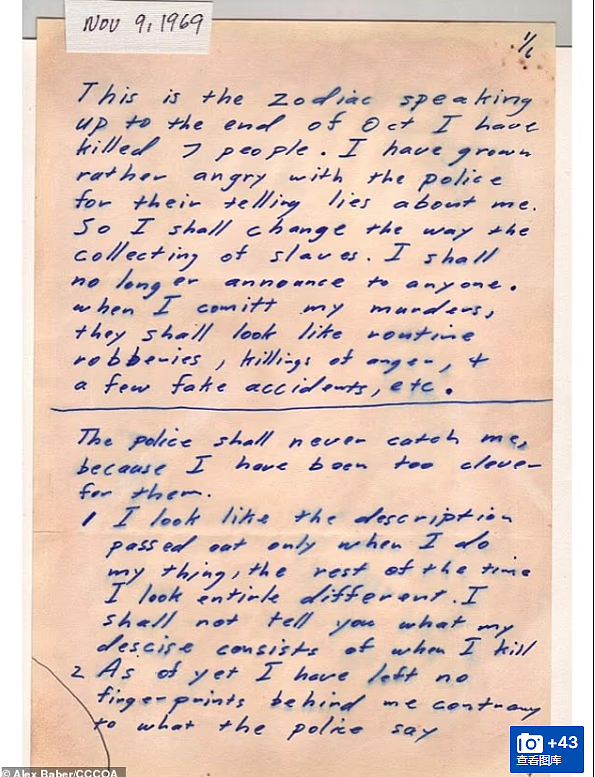 NOV 9, 1969
1/6
This is the Zodiac speaking
up to the end of Oct I have
killed 7 people. I have grown
rather angry with the police
for their telling lies about me.
So I shall change the way the
collecting of slaves. I shall
no longer announce to anyone.
when I comitt my murders,
they shall look like routine
robberies, killings of anger, +
a few fake accidents, etc.
The police shall never catch me,
because I have been too clever
for them.
1 I look like the description
passed out only when I do
my thing, the rest of the time
I look entirle different. I
shall not tell you what my
descise consists of when I kill
2 As of yet I have left no
fingerprints behind me contrary
to what the police say
+43
查看图库
© Alex Baber/CCCOA